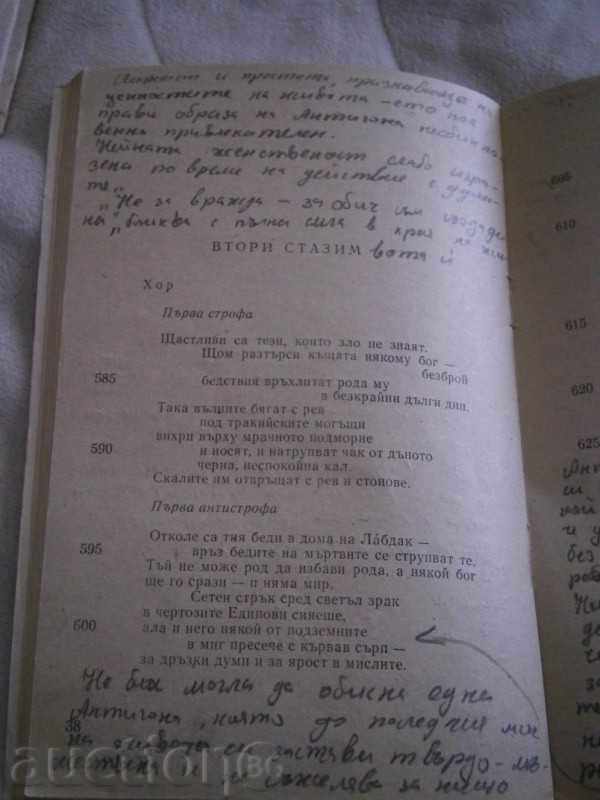 и простота, признаваща на
ценностите на живота – ето кое
прави образа на Антигона необикно
вено привлекателен.
Нейната женственост слабо изра-
зена по време на действие с думи
те
„Не за вражда – за обич съм създаде
на", бликва с пълна сила в края на жи
вота ѝ
ВТОРИ СТАЗИМ
Хор
Първа строфа
Щастливи са тези, които зло не знаят.
Щом разтърси къщата някому бог —
безброй
585
бедствия връхлитат рода му
в безкрайни дълги дни.
Така вълните бягат с рев
под тракийските могъщи
вихри върху мрачното подморие
590
и носят, и натрупват чак от дъното
черна, неспокойна кал.
Скалите им отвръщат с рев и стонове.
Първа антистрофа
Отколе са тия беди в дома на Лабдак —
595
връз бедите на мъртвите се струпват те.
Тъй не може род да избави рода, а някой бог
ще го срази — и няма мир.
Сетен стрък сред светъл зрак
в чертозите Едипови сияеше,
600
ала и него някой от подземните
в миг пресече с кървав сърп —
за дръзки думи и за ярост в мислите.
Не бих могла да обикна една
Антигона, която до последния
38
на живота си твърдо
и не съжелява за нищо
610
615
620
625